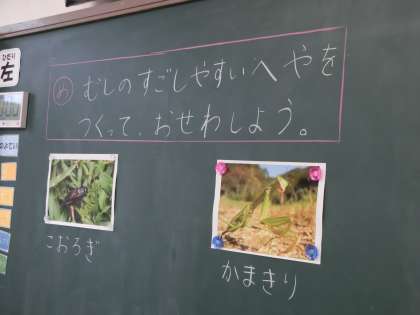 ひだり
左
め むしのすごしやすいへやを
つくって、おせわしよう。
こおろぎ
かまきり